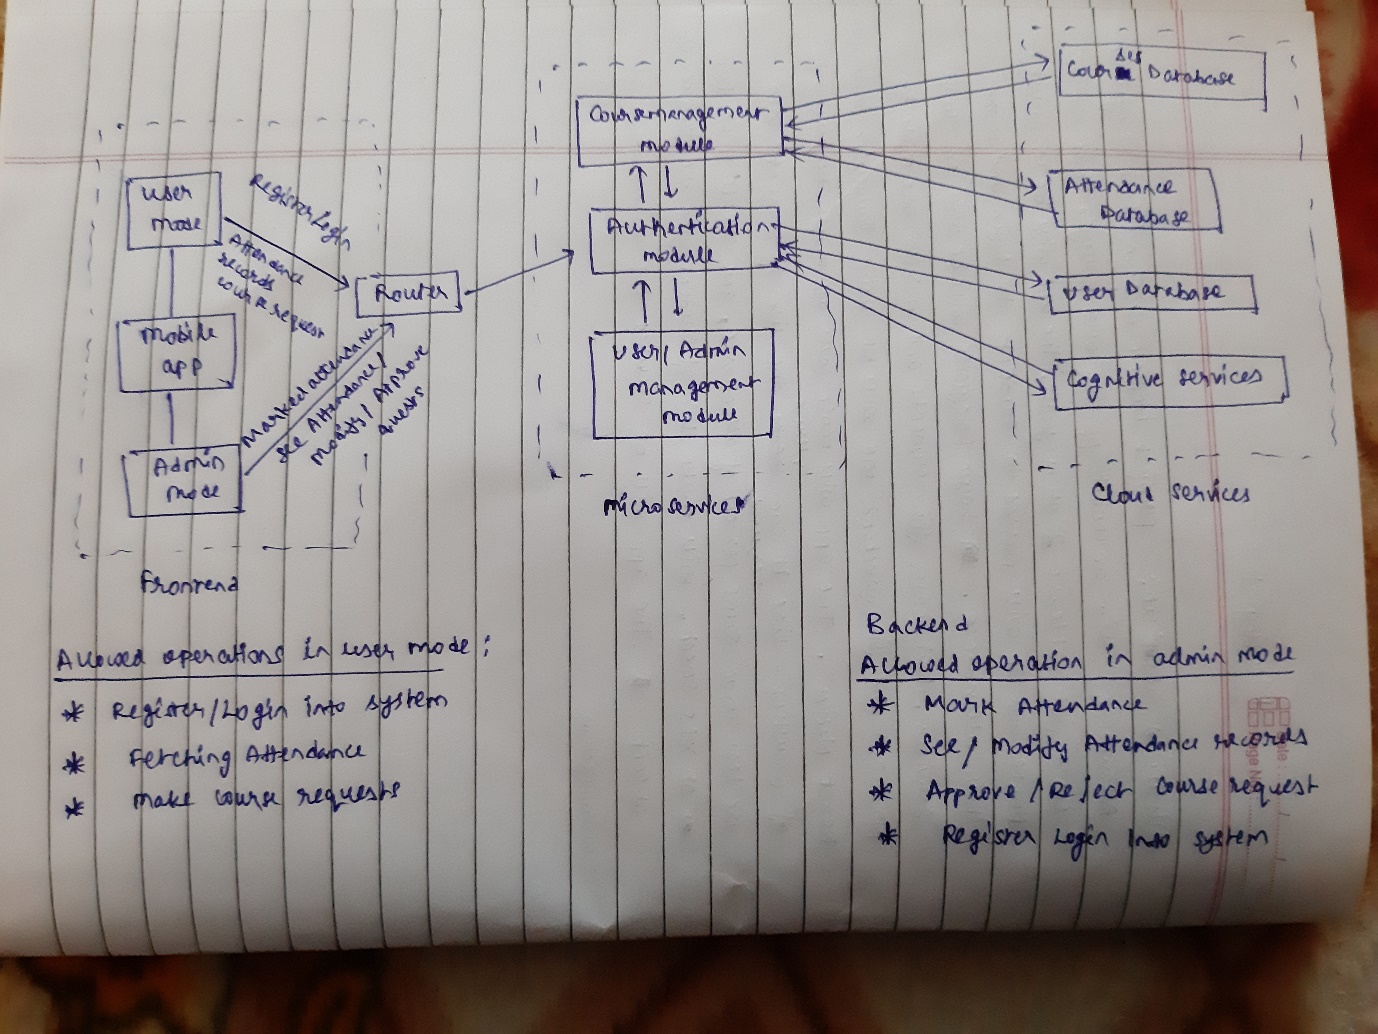 User
mode
Register/Login
Attendance
records
course request
Mobile
app
Admin
mode
Marked attendance
See Attendance/
modify/Approve
quests
Router
Frontend
Course management
module
Authentication
module
User/Admin
management
module
Microservices
Courses Database
Attendance
Database
User Database
Cognitive services
Cloud services
Allowed operations in user mode:
* Register/Login into system
* Fetching Attendance
* Make course requests
Backend
Allowed operation in admin mode
* Mark Attendance
* See/Modify Attendance records
* Approve/Reject course request
* Register Login into system